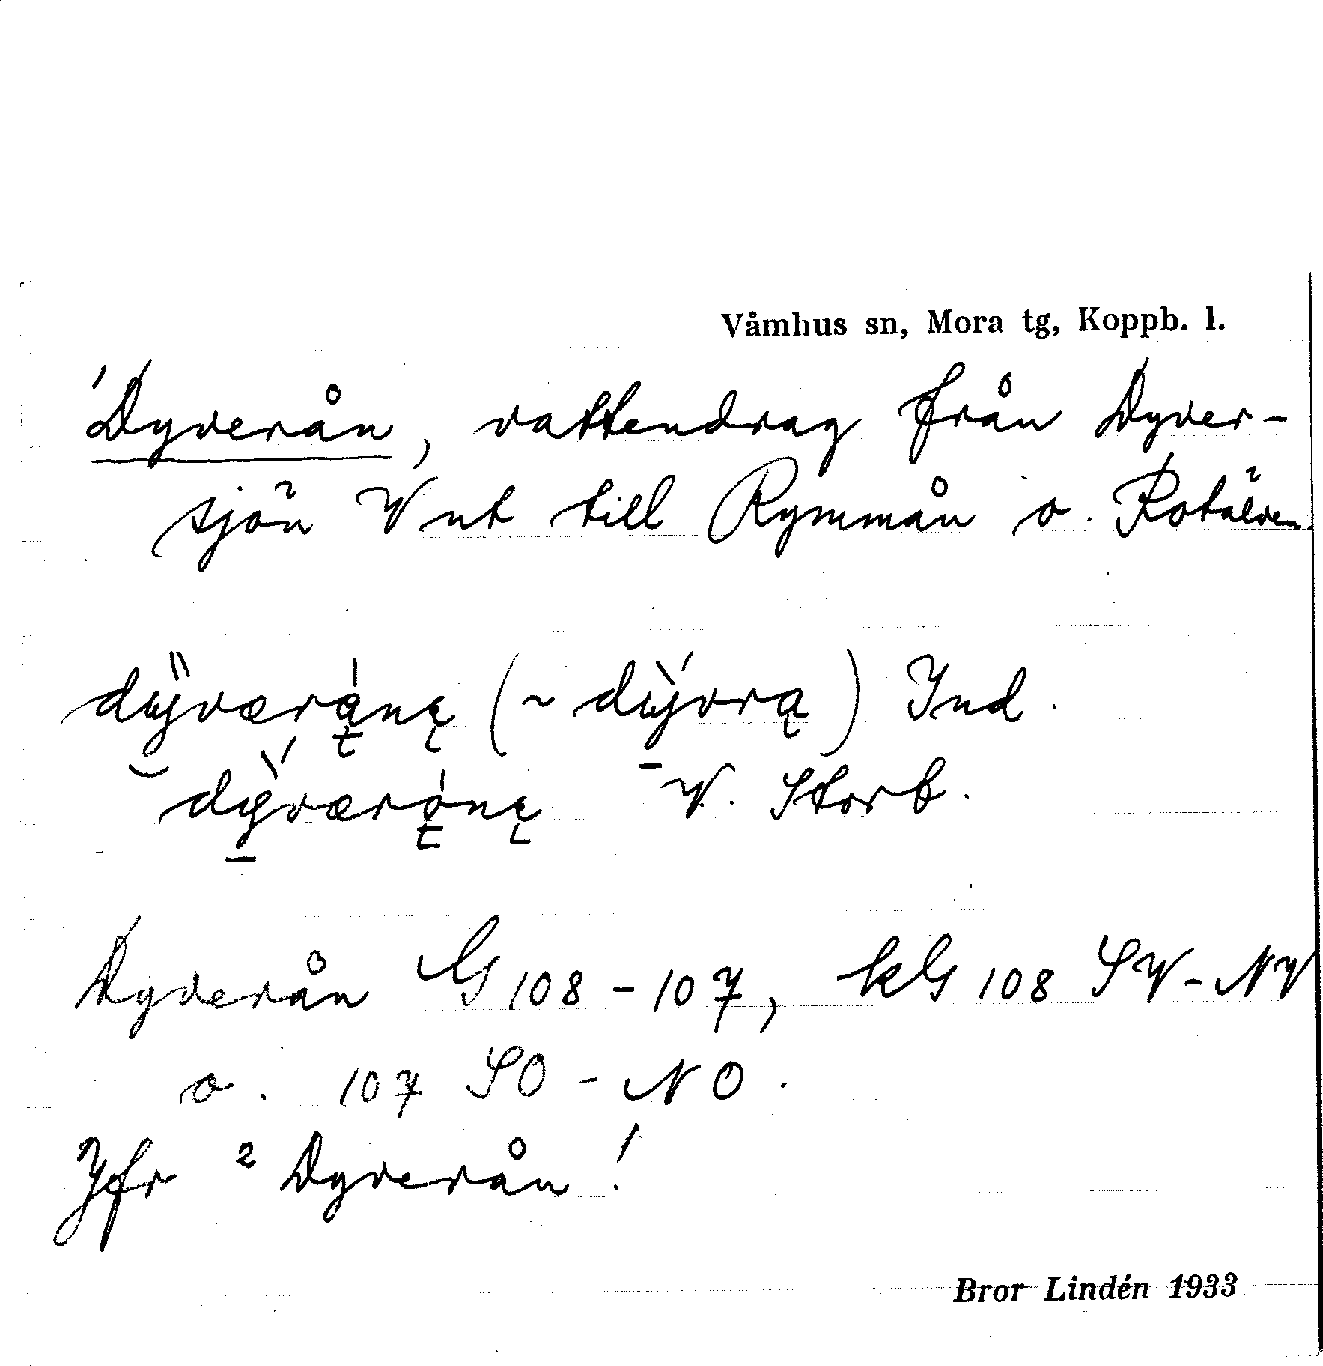 Våmhus sn, Mora tg, Koppb. l.
¹Dyverån, vattendrag från Dyver-
sjön V ut till Rymmån o. Rotälven
(~ ) Ind.
V. Storb.
Dyverån G 108 - 107, kG 108 SV - NV
o. 107 SO - NO.
Jfr ² Dyverån!
Bror Lindén 1933